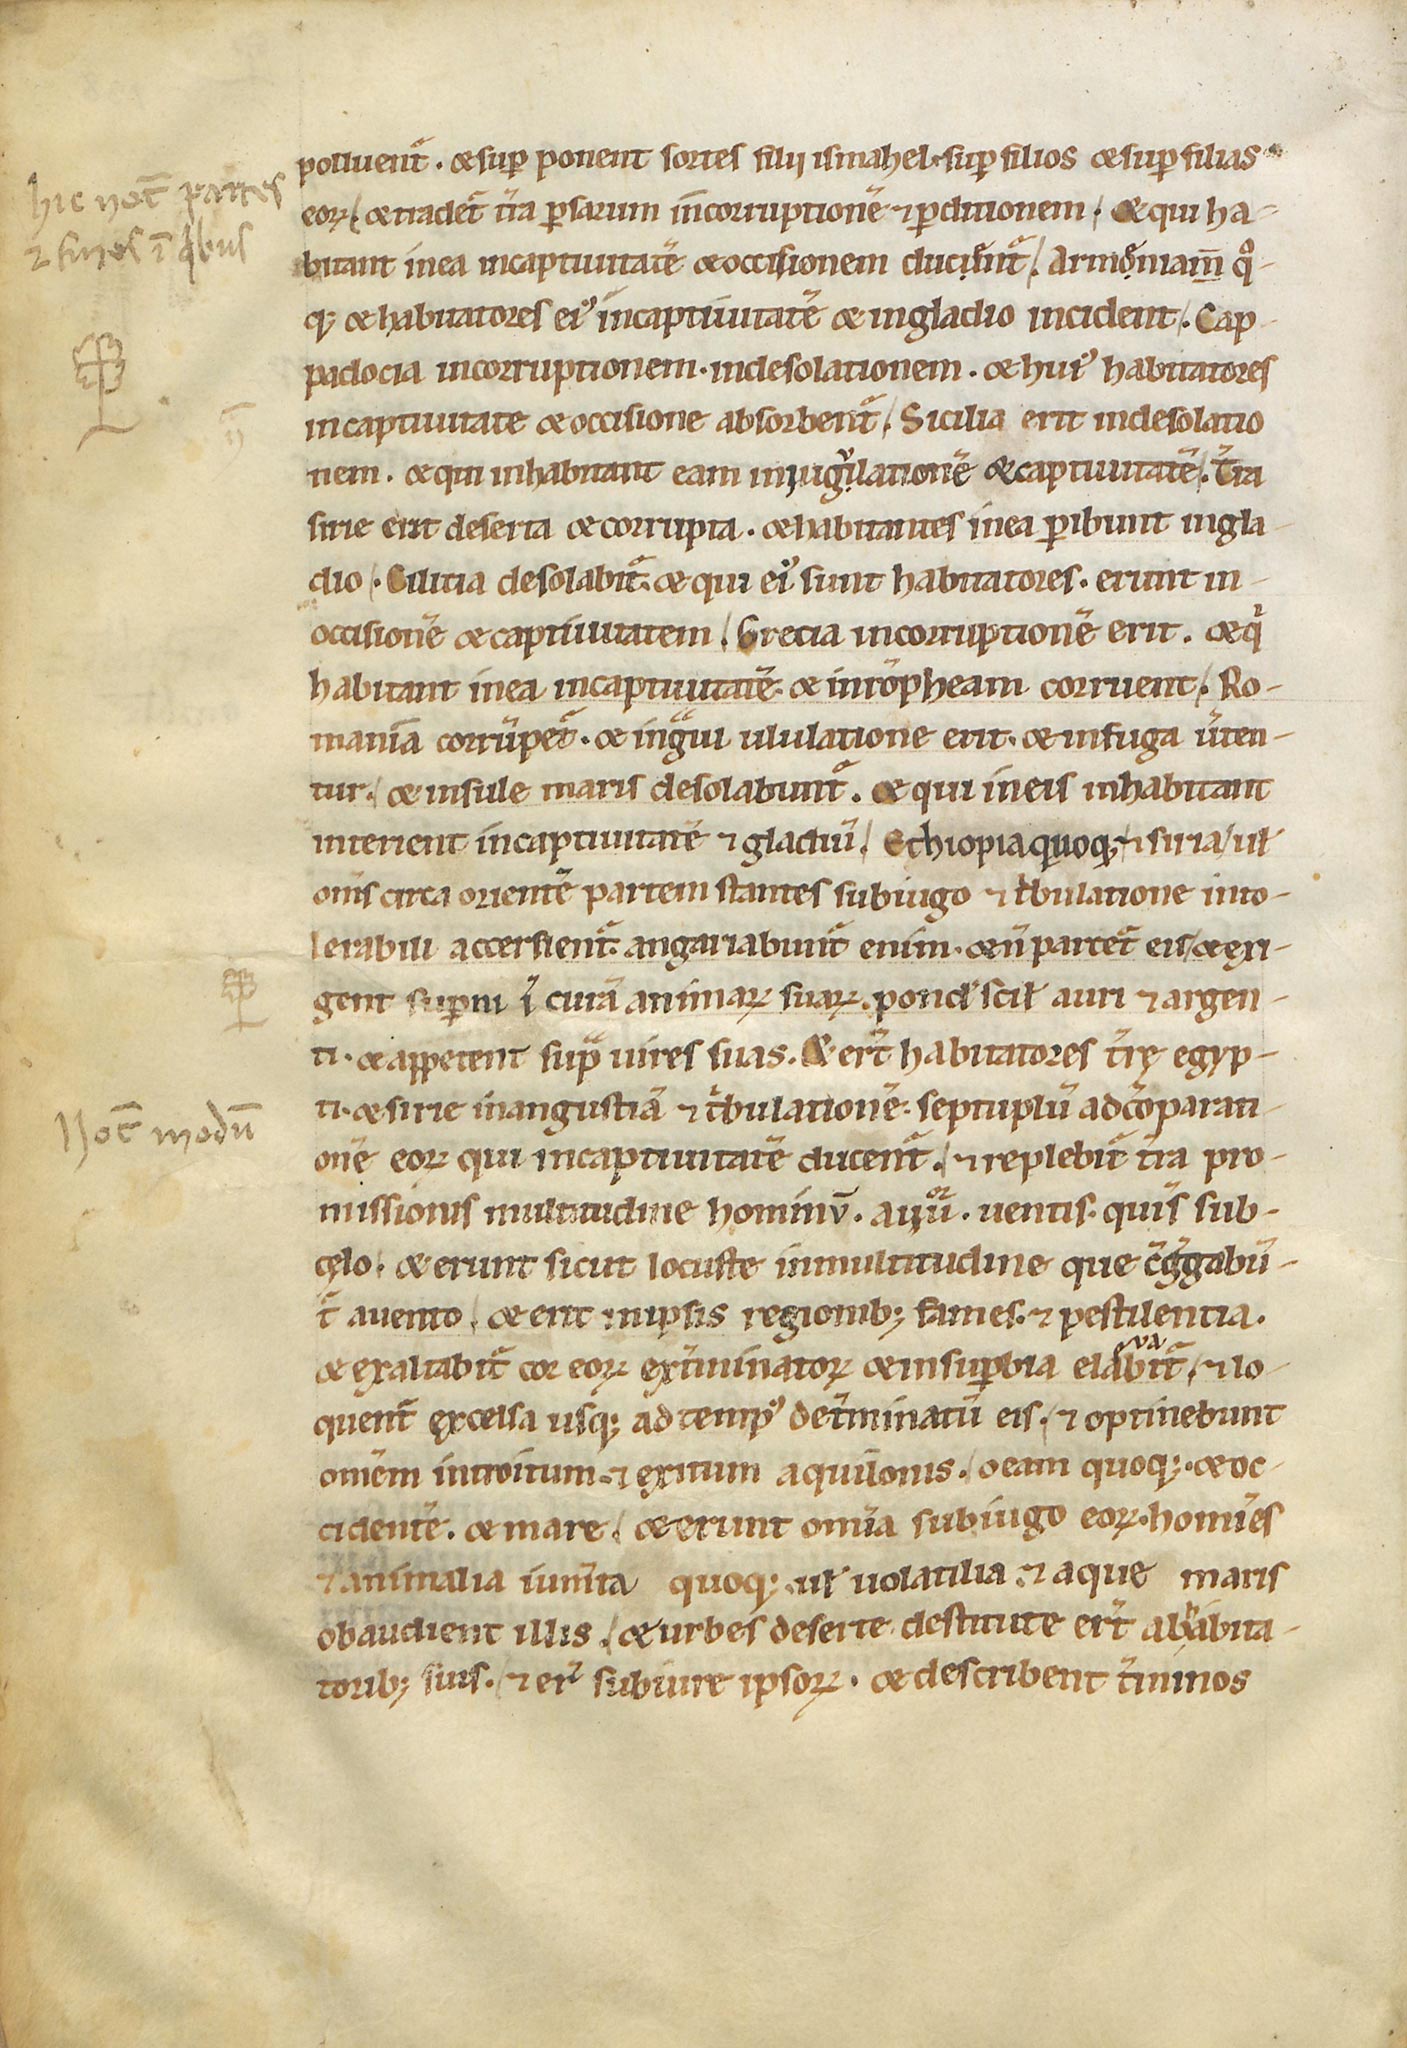 polluent᷑. & sup̱ ponent sortes filii ismahel. sup̱ filios & sup̱ filias
eoꝝ. & tradet᷑ t̄ra p̱sarum in corruptionē ⁊ p̱ditionem. & qui ha-
bitant in ea in captiuitatē & occisionem
q; & habitatores ei᷒ in captiuitatē & in gladio incident. Cap-
padocia in corruptionem. in desolationem. & hui᷒ habitatores
in captiuitate & occisione absorbent᷑. Sicilia erit in desolatio
nem. & qui inhabitant eam in iugulationē & captiuitatē. T̄ra
sirie erit deserta & corrupta. & habitantes in ea p̱ibunt in gla-
dio. Cilitia desolabit᷑. & qui ei᷒ sunt habitatores. erunt in-
occisionē & captiuitatem. Grecia in corruptionē erit. & qⁱ
habitant in ea in captiuitatē. & in rōpheam corruent. Ro-
maniā corrūpet᷑. & in gͣui ululatione erit. & in fuga ūten-
tur. & insule maris desolabunt᷑. & qui in eis inhabitant
interient in captiuitatē ⁊ gladiū. Ethiopia quoq; ⁊ siria ul̄
om̄s circa orientē partem stantes sub iugo ⁊ tⁱbulatione into-
lerabili accersient᷑. angariabunt᷑ enim. & n̄ parcet᷑ eis & exi-
gent sup̱ni ī curā animaꝝ suaꝝ. pond᷒ scil̄ auri ⁊ argen-
ti. & appetent sup̱ uires suas. & er̄t habitatores t̄rę egyp-
ti. & sirie in angustiā ⁊ tⁱbulationē. septuplū ad cōparati-
onē eoꝝ qui in captiuitatē ducent᷑. ⁊ replebit᷑ t̄ra pro-
missionis multitudine hominū. ventis. quis sub-
cęlo. & erunt sicut locuste in multitudine que c̄gͤgabū-
t᷑ a uento. & erit in ipsis regionib; fames. ⁊ pestilentia.
& exaltabit᷑ cor eoꝝ ext̄minatoꝝ & in sup̱bia elabit᷑ ua ⁊ lo-
quent᷑ excelsa usq; ad temp᷒ det̄minatū eis. ⁊ optinebunt
omēm introitum. ⁊ exitum aquilonis. oeam quoq;. & oc-
cidentē. & mare. & erunt omīa sub iugo eoꝝ. homīes
⁊ animalia iumt̄a quoq;. ul̄ uolatilia. ⁊ aque maris
obaudient illis. & urbes deserte destitute er̄t ab habita-
torib; suis. ⁊ er̄t sub iure ipsoꝝ. & describent t̄minos
hic not̄ partes
⁊ fines ī qⁱbus
Not̄ modū